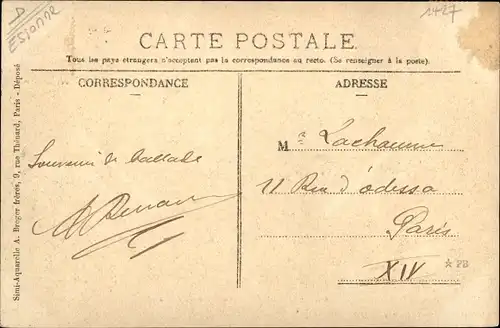 D
ESSONNE
1427
CARTE POSTALE
Tous les pays étrangers n'acceptent pas la correspondance au recto. (Se renseigner à la poste).
CORRESPONDANCE
ADRESSE
Semi-Aquarelle A. Breger frères, 9, rue Thénard, Paris - Déposé
Souvenir de ballade
M Lachaume
11 Rue d'odessa
Paris
XIV
★ PB